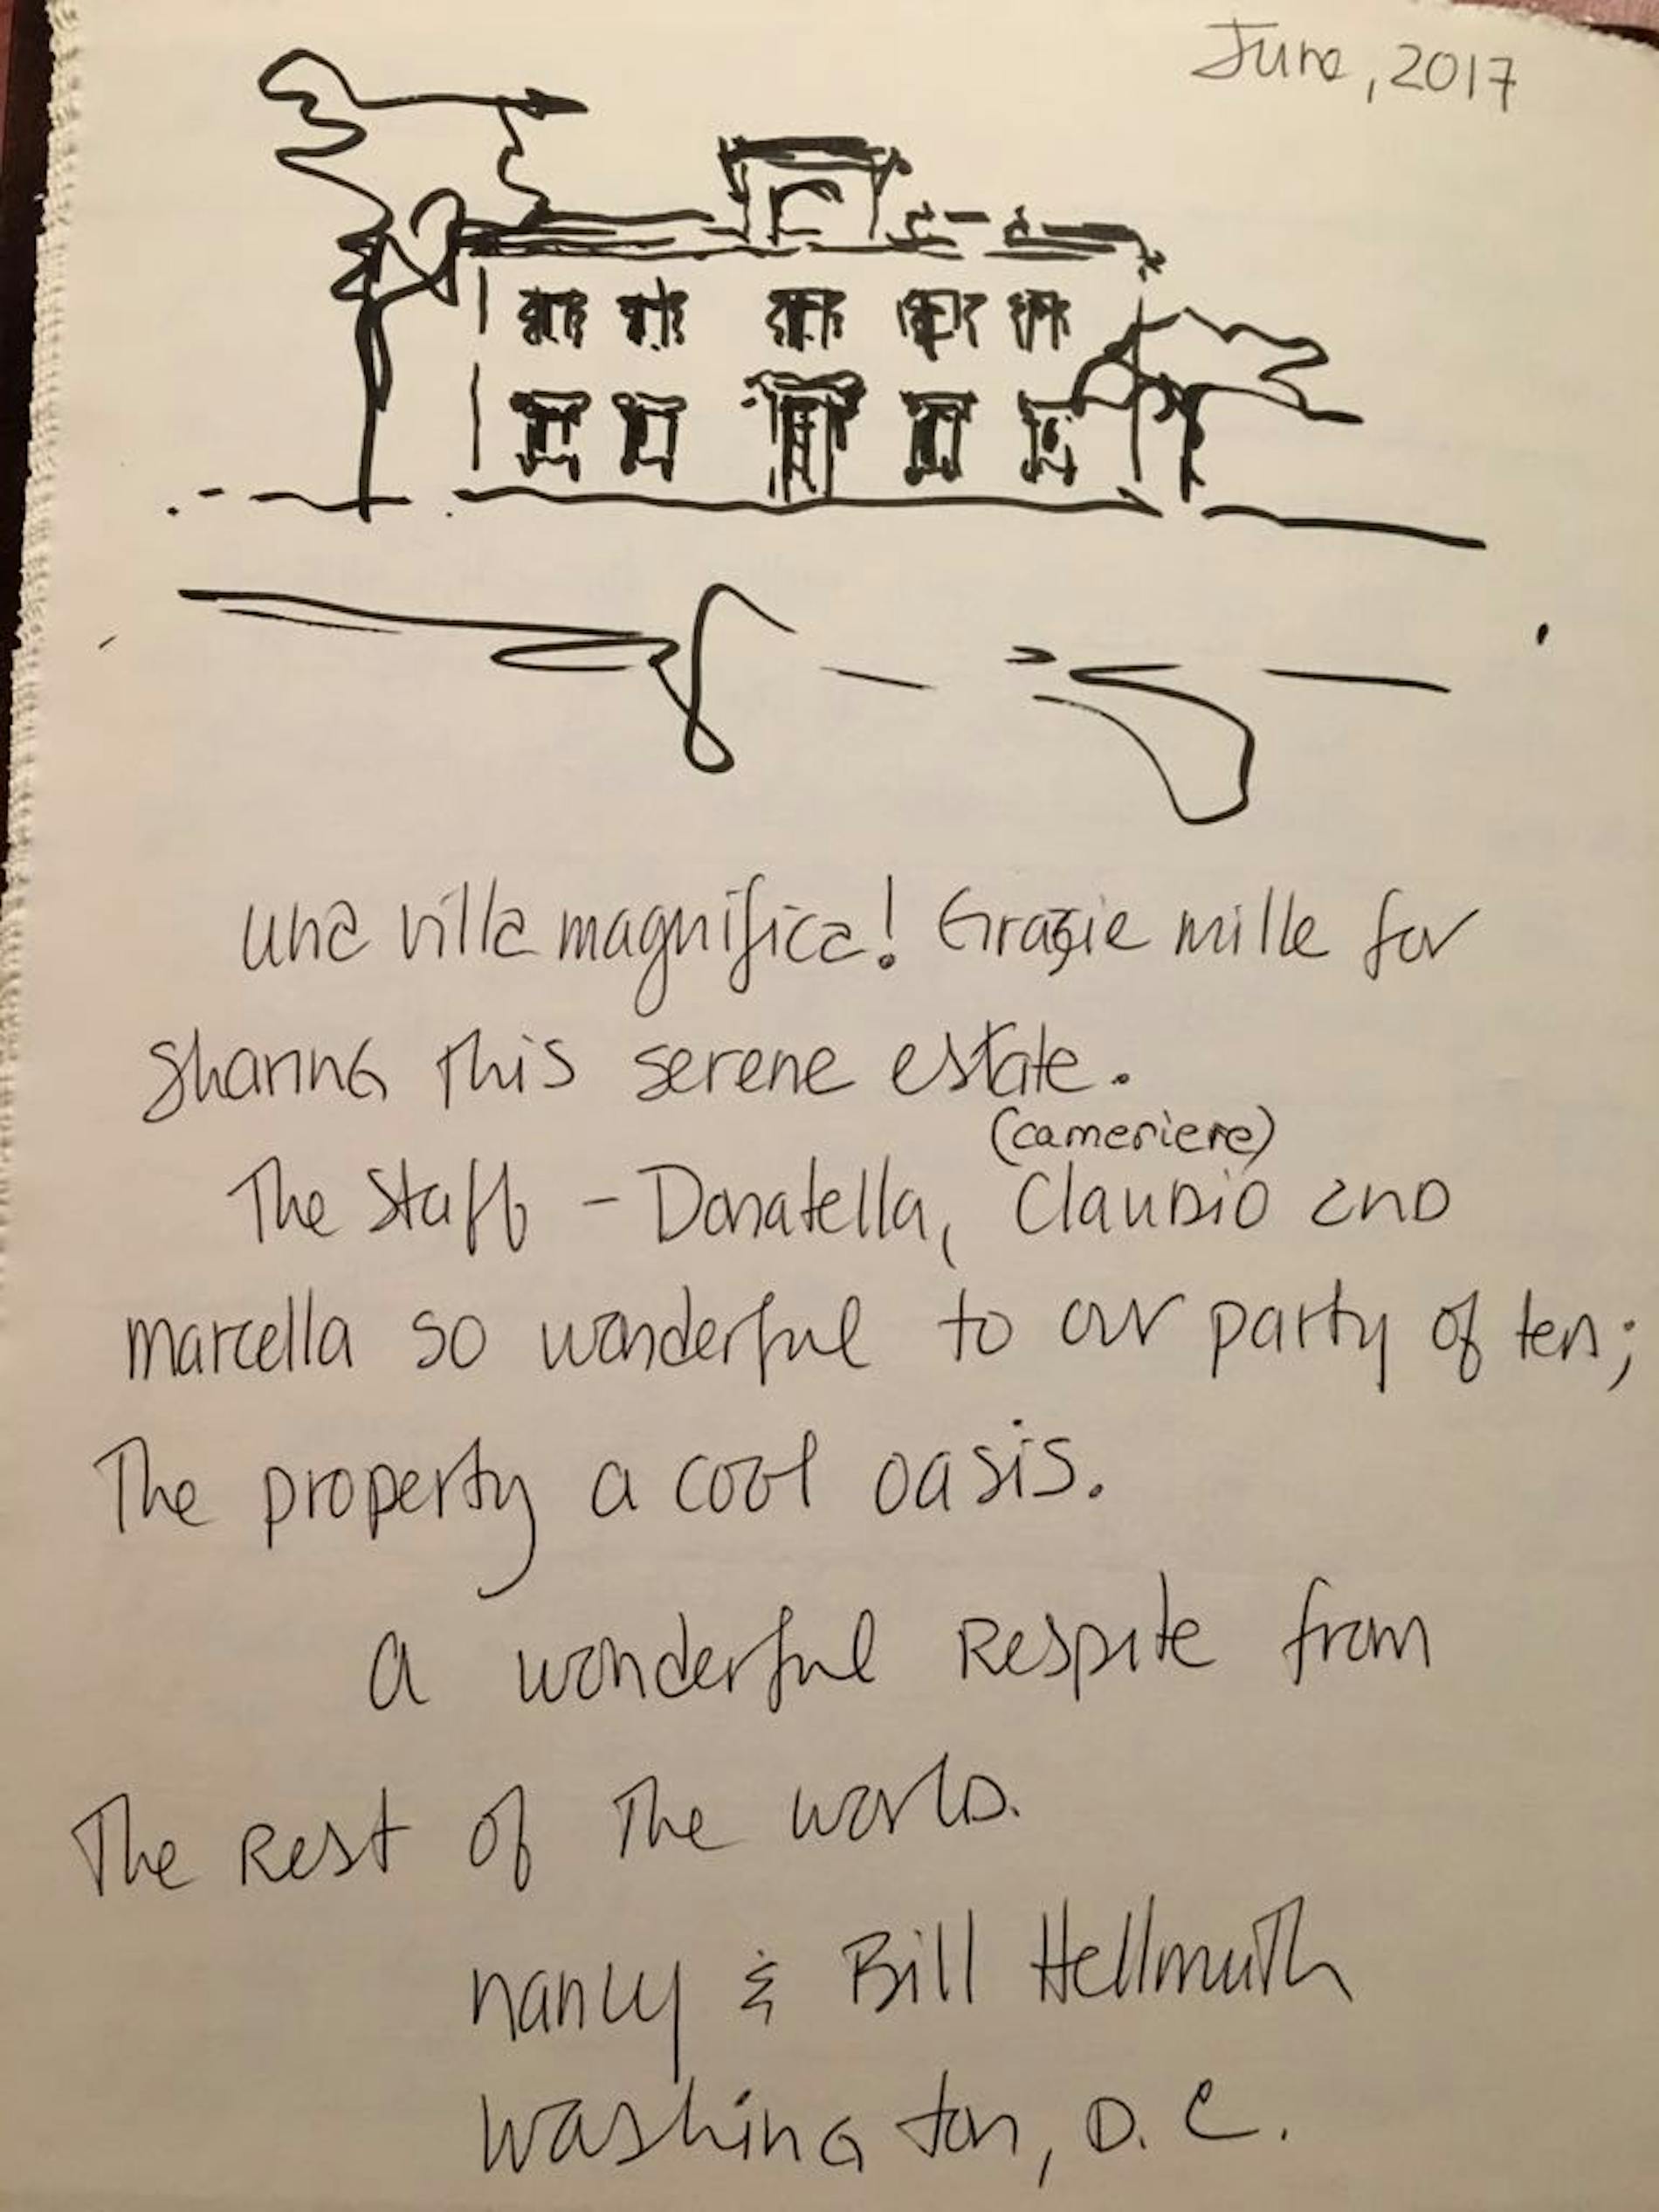 June, 2017
una villa magnifica! Grazie mille for
sharing this serene estate.
(cameriere)
The staff - Donatella, Claudio and
marcella so wonderful to our party of ten;
The property a cool oasis.
a wonderful Respite from
The Rest of The world.
nancy & Bill Hellmuth
Washington, D.C.